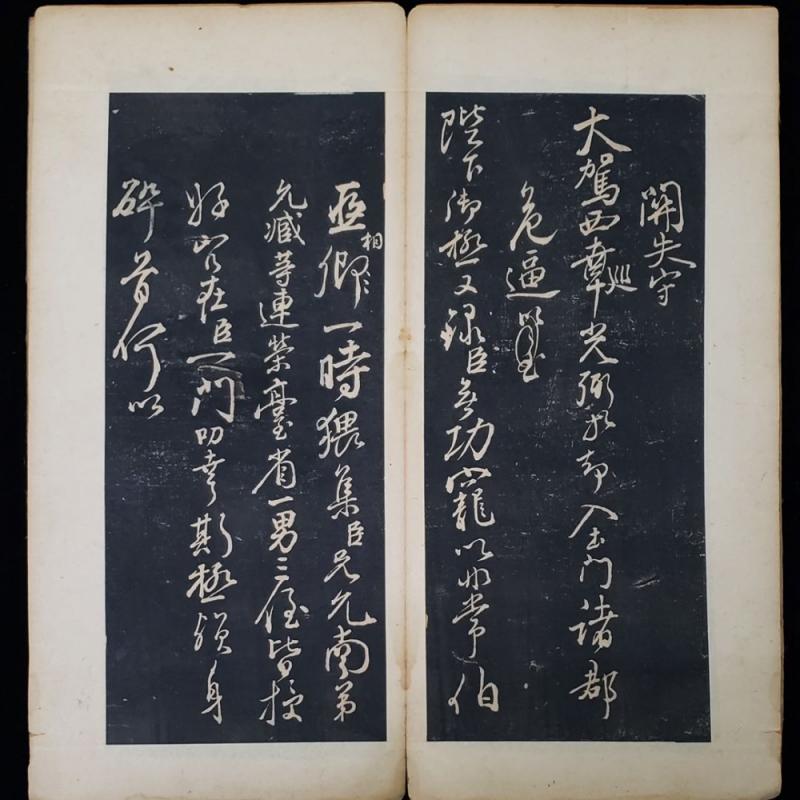 關失守
大駕西幸巡光弼却入土門諸郡
危逼以至
陛下御極又錄臣無功寵以非常伯
亞相卿一時猥集臣兄允南弟
允臧等連榮臺省一男三侄皆授
好官在臣一門叨幸斯極殞身
碎首何以